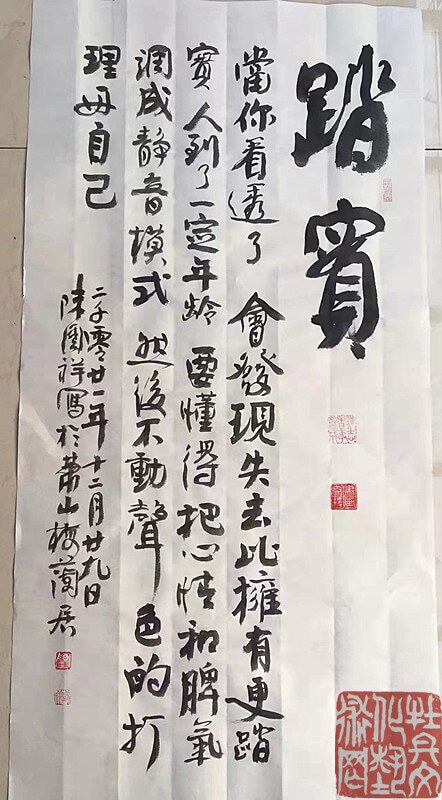 踏實
當你看透了 會發現失去比擁有更踏
實 人到了一定年龄 要懂得把心情和脾氣
調成靜音模式 然後不動聲色的打
理好自己
二千零廿一年十二月廿九日
陳國祥寫於蕭山梅蘭居